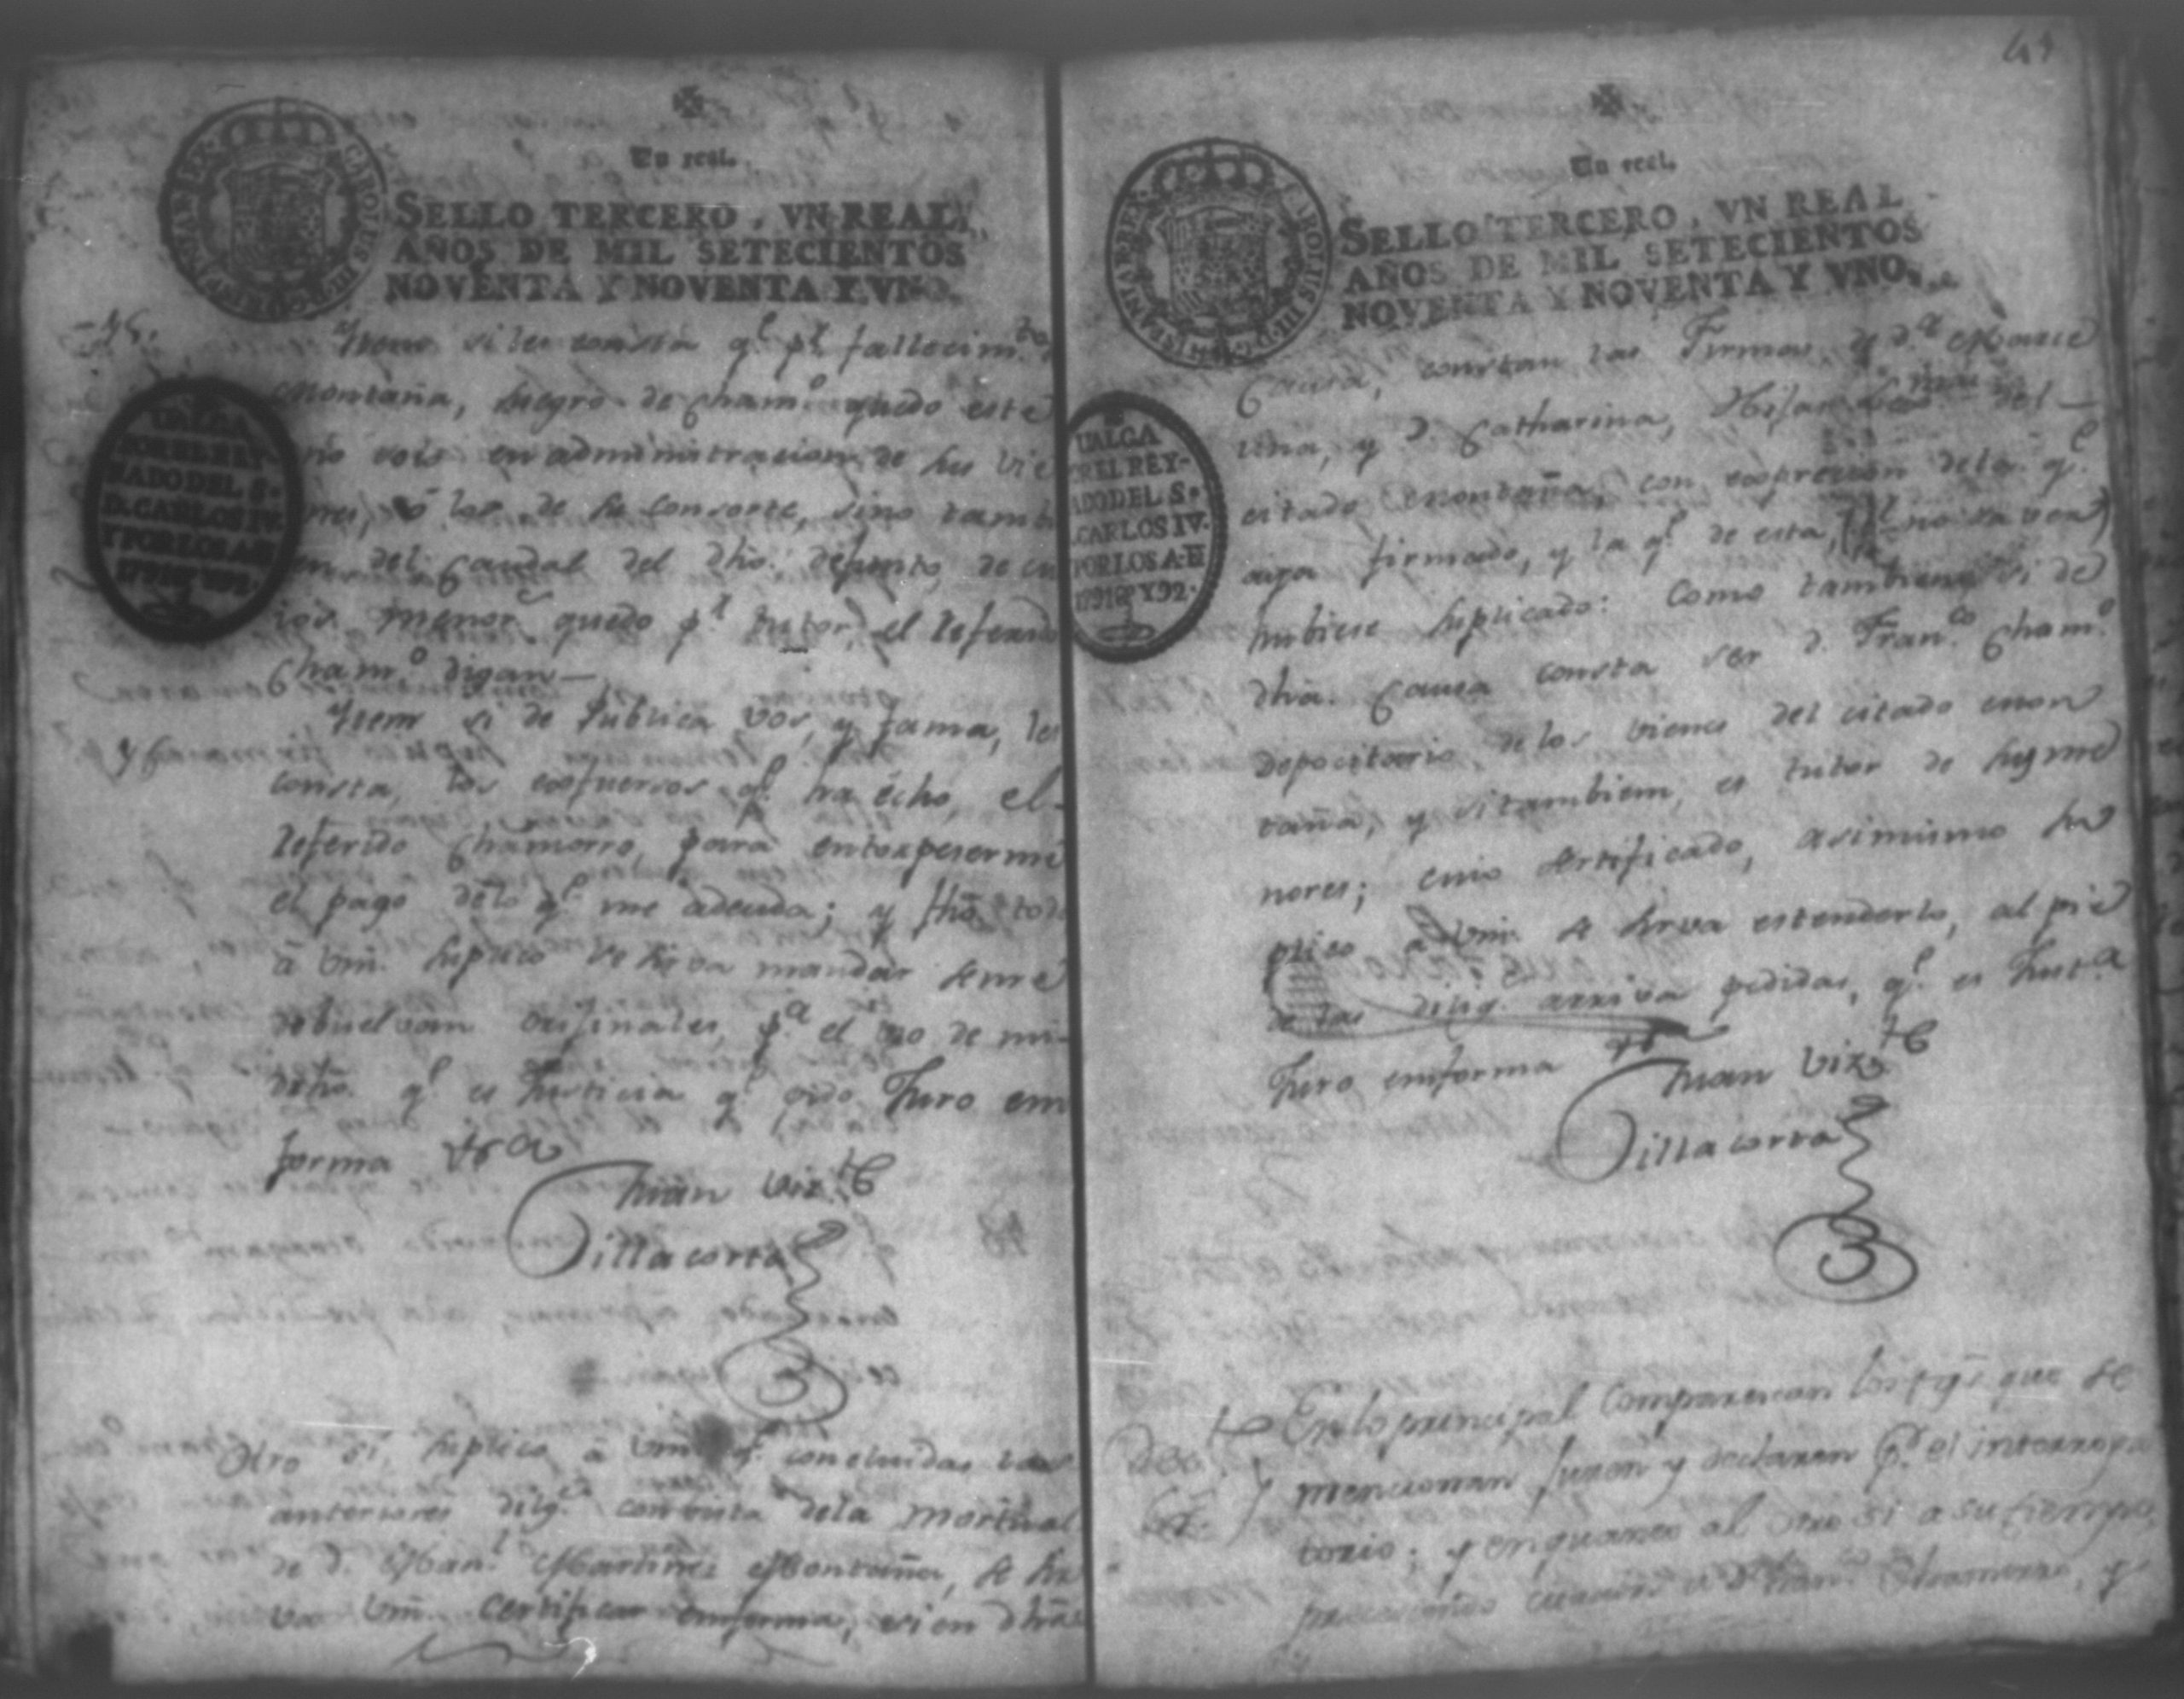 Un real.
SELLO TERCERO, VN REAL,
AÑOS DE MIL SETECIENTOS
NOVENTA Y NOVENTA Y VNO.
CAROLUS III
VALGA
POR EL REY-
NADO DEL S.
D. CARLOS IV.
Y POR LOS A-
1791 Y 92.
Ytem si les consta q.e p.r fallecim.to
Montaña, suegro de Cham.o quedo este
no solo en administracion de sus vie
nes, ó los de su consorte, sino tambi
en del Caudal del dho. defunto, de cu
ios menor.s quedo p.r tutor, el referido
Cham.o digan—
Ytem si de publica vos, y fama, les
consta, los esfuersos q.e ha écho, el
referido Chamorro, para entorpeserme
el pago delo q.e me adeuda; y fho. todo
â Vm. suplico se sirva mandar seme
debuelvam orijinales, p.a el uso de mi
dŕho. q.e es Justicia q.e pido Juro em
forma &.a
Juan Viz.te
Villacorta
Otro si, suplico â Vm. q.e concluidas las
anteriores dilig.s con vista dela mortual
de d. Man.l Martines Montaña, se sir
va Vm. Certificar emforma, si en dhâ.
41
Un real.
SELLO TERCERO, VN REAL
AÑOS DE MIL SETECIENTOS
NOVENTA Y NOVENTA Y VNO.
VALGA
POR EL REY-
NADO DEL S.
D. CARLOS IV.
Y POR LOS A-
1791 Y 92.
Causa, constan las Firmas, de d.a Marce
lina, y d. Catharina, Hijas del
citado Montaña, con expresion dela q.e
aiga firmado, y la q.e de esta, no
hubiese suplicado: Como tambien si de
dhâ. Causa consta ser d. Fran.co Cham.o
depocitario, de los vienes del citado Mon
taña, y si tambiem, es tutor de sus me
nores; cuio sertificado, asimismo su
plico a Vm. se sirva estenderlo, al pie
de las dilig.s arriva pedidas, q.e es Just.a
Juro emforma &.a
Juan Viz.te
Villacorta
Enlo principal Comparescan los tgs. que se
mencionan Juren y declaren p.r el interroga
torio; y enquanto al otro si a su tiempo,